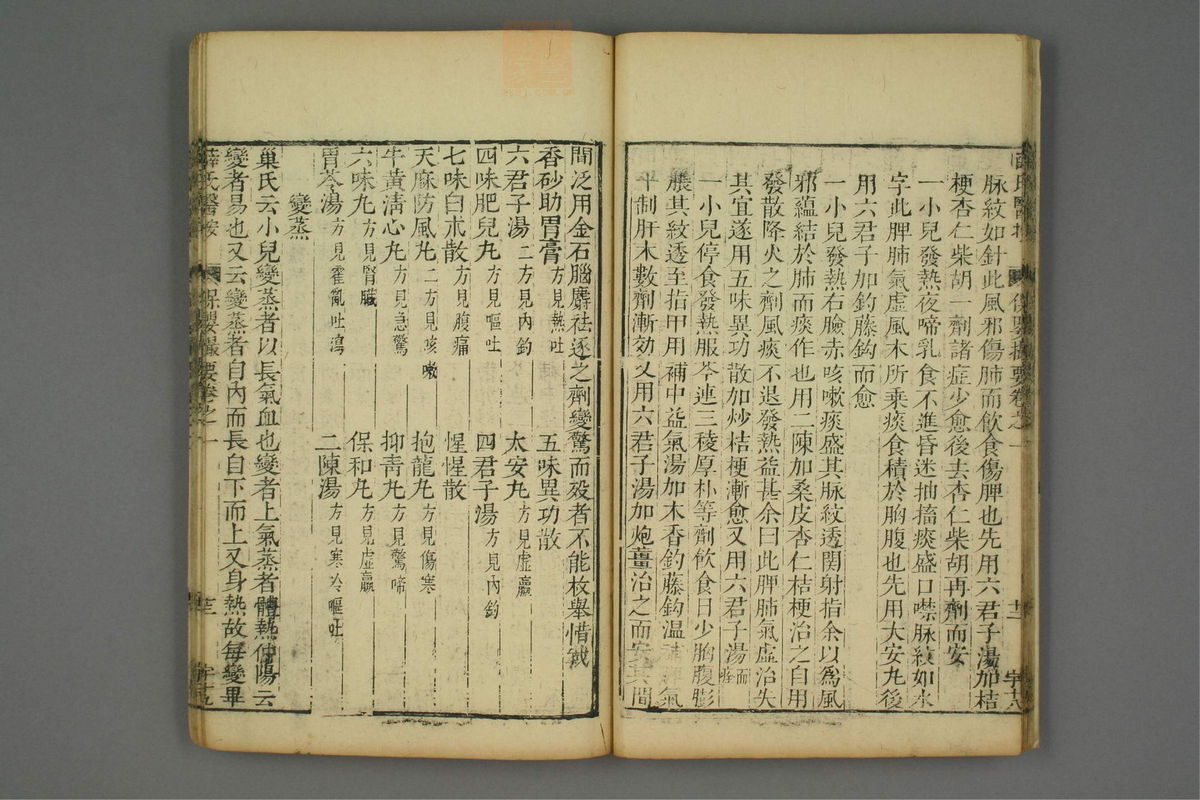 脉紋如針此風邪傷肺而飲食傷脾也先用六君子湯加桔
梗杏仁柴胡一劑諸症少愈後去杏仁柴胡再劑而安
一小兒發熱夜啼乳食不進昏迷抽搐痰盛口噤脉紋如水
字此脾肺氣虛風木所乗痰食積於胸腹也先用大安丸後
用六君子加釣藤鈎而愈
一小兒發熱右臉赤咳嗽痰盛其脉紋透関射指余以爲風
邪蘊結於肺而痰作也用二陳加桑皮杏仁桔梗治之自用
發散降火之劑風痰不退發熱益甚余曰此脾肺氣虛治失
其宜遂用五味異功散加炒桔梗漸愈又用六君子湯而痊
一小兒停食發熱服芩連三稜厚朴等劑飲食日少胸腹膨
脹其紋透至指甲用補中益氣湯加木香釣藤鈎温氣
平制肝木數劑漸効又用六君子湯加炮薑治之而安其間
薛氏醫按 保嬰撮要卷之一 十二 字十八
間泛用金石腦麝祛逐之劑變驚而殁者不能枚舉惜㢤
香砂助胃膏方見熱吐 五味異功散
六君子湯二方見内釣 大安丸方見虛羸
四味肥兒丸方見嘔吐 四君子湯方見内釣
七味白朮散方見腹痛 惺惺散
天麻防風丸二方見咳嗽 抱龍丸方見傷寒
牛黃淸心丸方見急驚 抑靑丸方見驚啼
六味丸方見腎臟 保和丸方見虛羸
胃苓湯方見霍亂吐瀉 二陳湯方見寒冷嘔吐
變蒸
巢氏云小兒變蒸者以長氣血也變者上氣蒸者體熱仲陽云
變者易也又云變蒸者自內而長自下而上又身熱故每變畢
薛氏醫按 保嬰撮要卷之一 十三 字十五